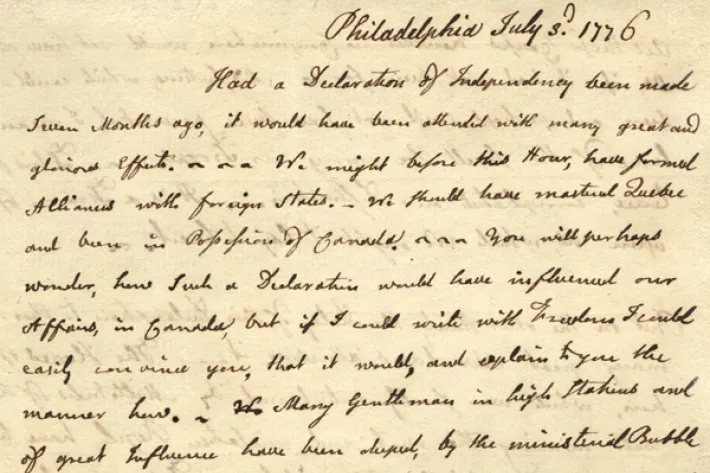 Philadelphia July 3.ᵈ 1776
Had a Declaration of Independency been made
seven Months ago, it would have been attended with many great and
glorious Effects. ~ ~ ~ We might before this Hour, have formed
Alliances with foreign States. – We should have mastered Quebec
and been in Possession of Canada. ~ ~ ~ You will perhaps
wonder, how such a Declaration would have influenced our
Affairs, in Canada, but if I could write with Freedom I could
easily convince you, that it would, and explain to you the
manner how. ~ Many Gentlemen in high Stations and
of great Influence have been duped, by the ministerial Bubble